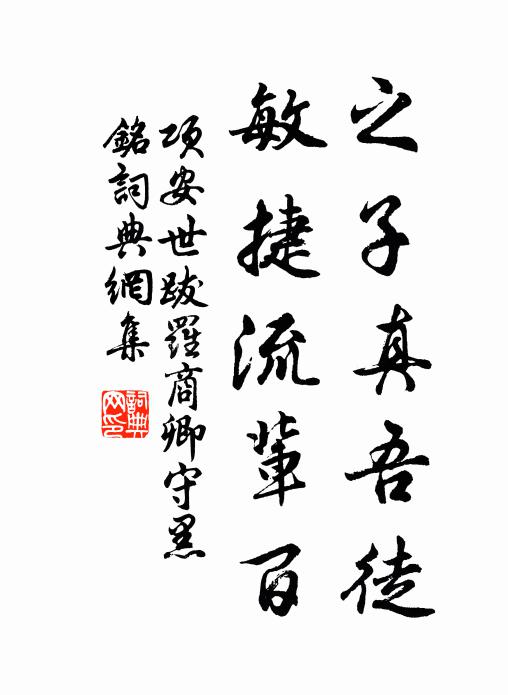 之子真吾徒
敏捷流輩百
項安世跋羅商卿守黑
銘詞典網集
詞典网印